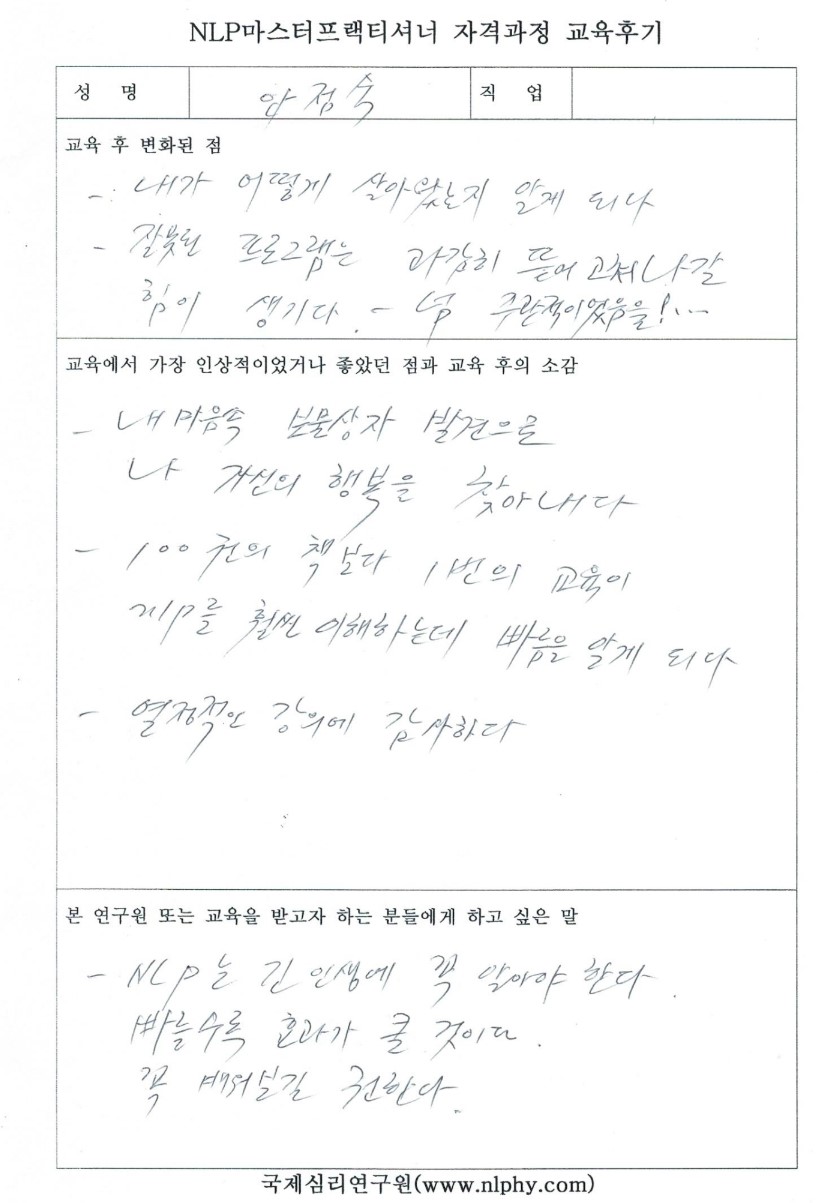 NLP마스터프랙티셔너 자격과정 교육후기
성 명 안점숙 직 업
교육 후 변화된 점
- 내가 어떻게 살아왔는지 알게 되다
- 잘못된 프로그램은 과감히 뜯어 고쳐나갈
힘이 생기다. - 넘 주관적이었음을!...
교육에서 가장 인상적이었거나 좋았던 점과 교육 후의 소감
- 내 마음속 보물상자 발견으로
나 자신의 행복을 찾아내다
- 100권의 책보다 1번의 교육이
NLP를 훨씬 이해하는데 빠름을 알게 되다
- 열정적인 강의에 감사하다
본 연구원 또는 교육을 받고자 하는 분들에게 하고 싶은 말
- NLP는 긴 인생에 꼭 알아야 한다.
빠를수록 효과가 클 것이다.
꼭 배워보길 권한다.
국제심리연구원(www.nlphy.com)